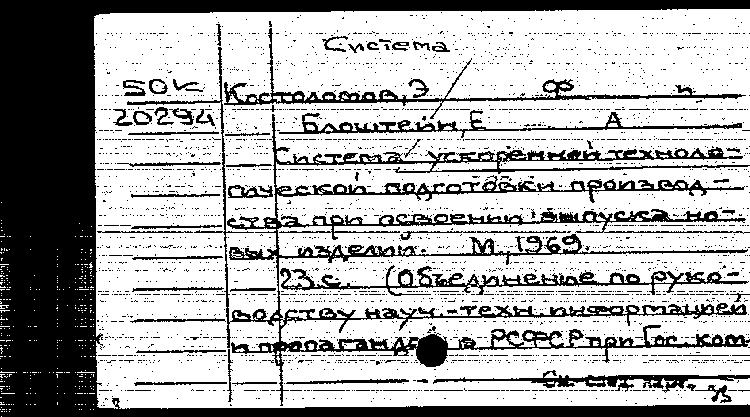 Система
50К Костоломов, Э Ф и
20294 Блоштейн, Е А
Система ускоренной техноло-
гической подготовки производ-
ства при освоении выпуска но-
вых изделий. М., 1969.
23 с. (Объединение по руко-
водству науч.-техн. информацией
и пропагандой в РСФСР при Гос. ком
См. след.